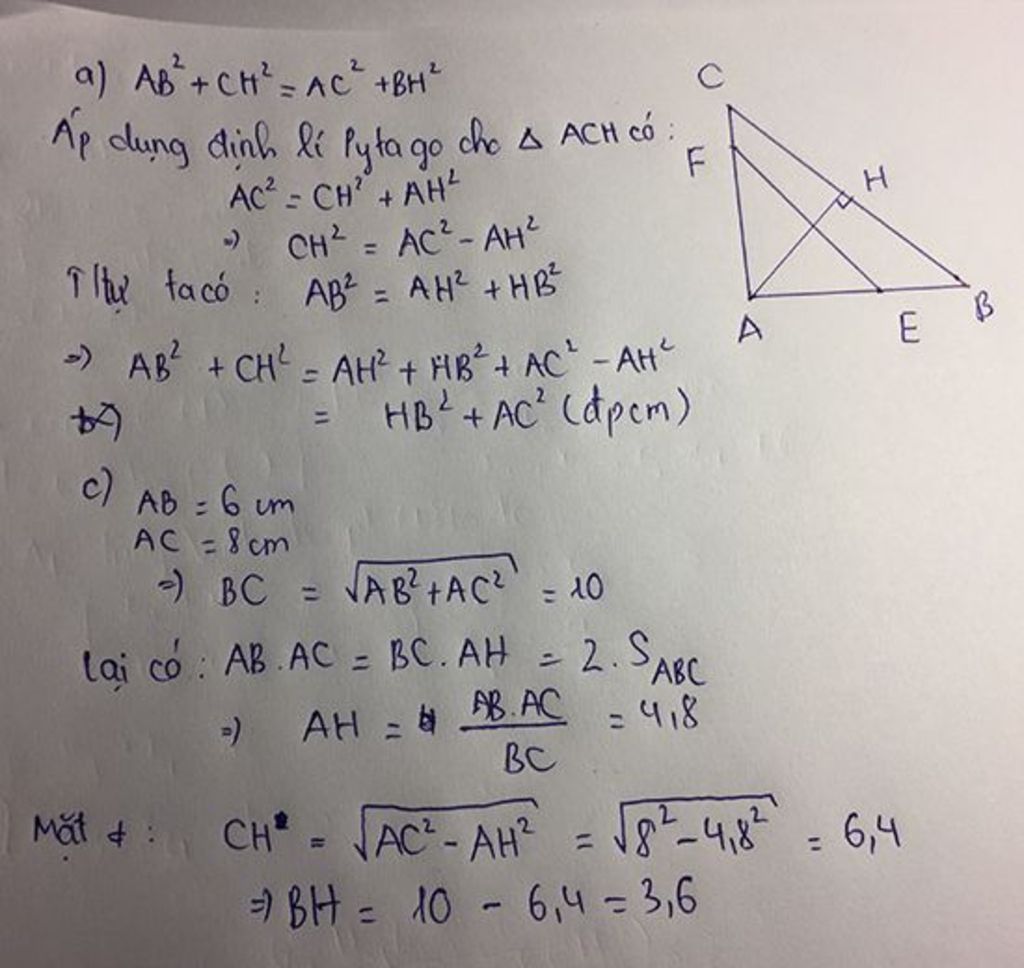 a) AB² + CH² = AC² + BH²
Áp dụng định lí Pytago cho Δ ACH có :
AC² = CH² + AH²
=) CH² = AC² - AH²
T/tự ta có : AB² = AH² + HB²
=) AB² + CH² = AH² + HB² + AC² - AH²
= HB² + AC² (đpcm)
C
F
H
A
E
B
c) AB = 6 cm
AC = 8 cm
=) BC = √(AB² + AC²) = 10
lại có : AB . AC = BC . AH = 2 . S_ABC
=) AH = AB.AC / BC = 4,8
Mặt ≠ : CH = √(AC² - AH²) = √(8² - 4,8²) = 6,4
=) BH = 10 - 6,4 = 3,6